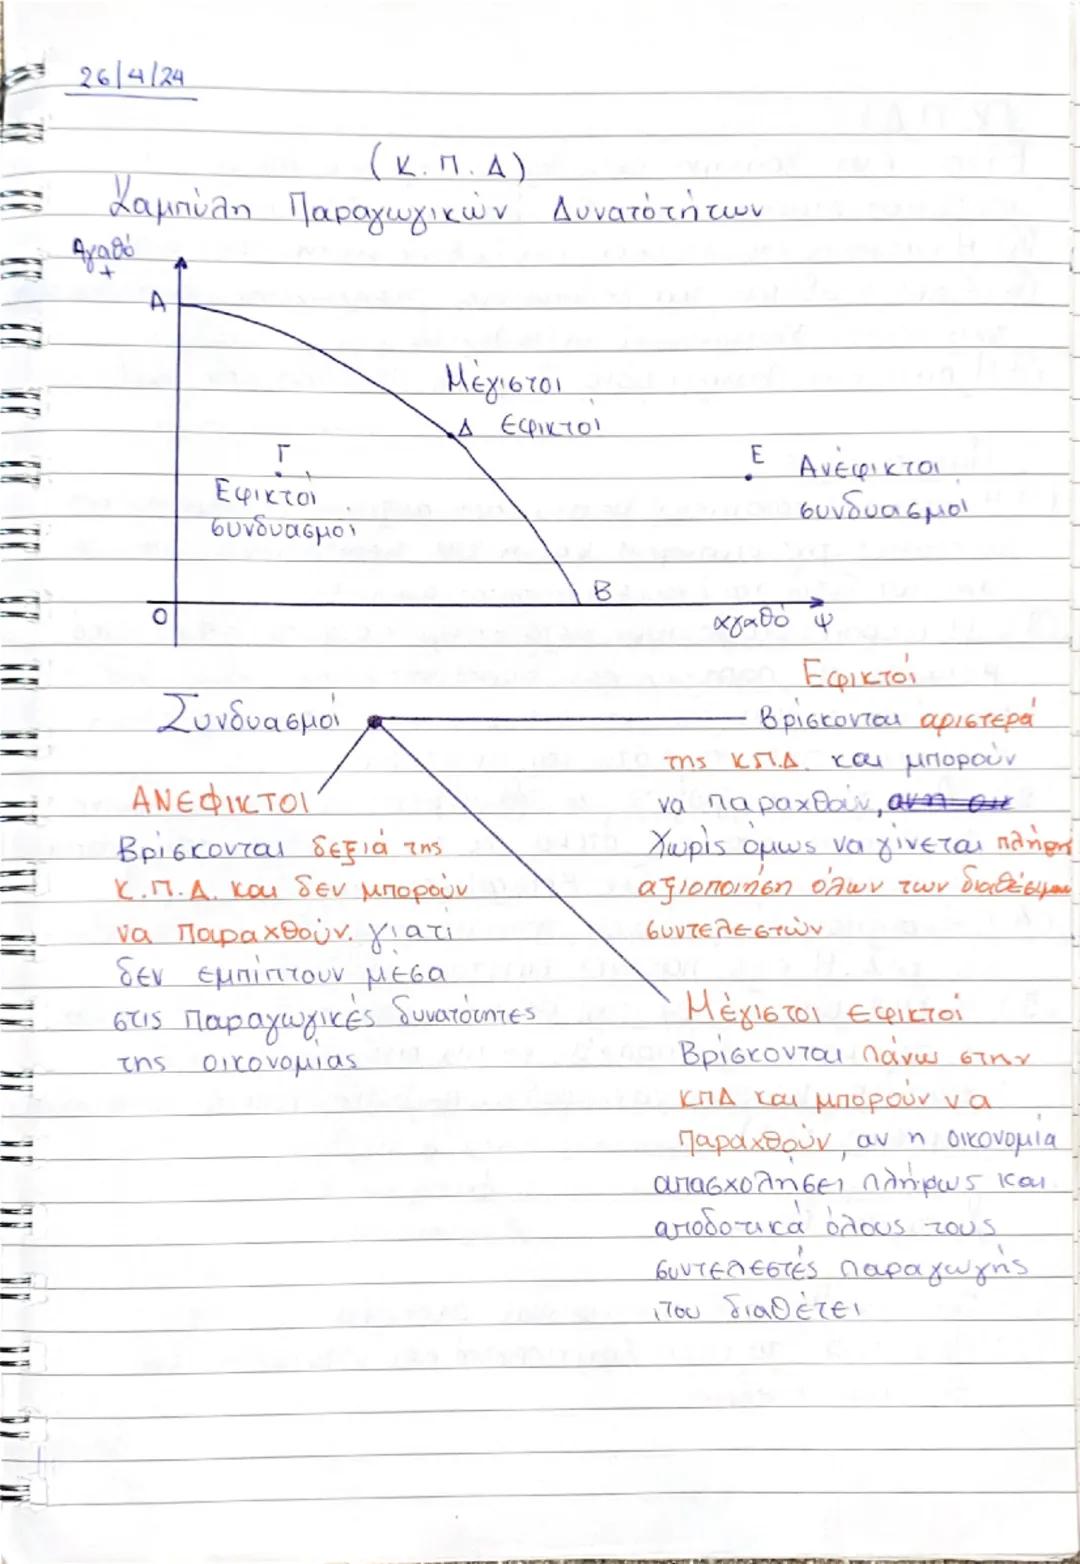 26/4/24
(Κ.Π.Δ)
Καμπύλη Παραγωγικών Δυνατότήτων
Αγαθό
+
Α
Μέγιστοι
Δ Εφικτοί
Γ
Εφικτοί
συνδυασμοί
Ε
Ανέφικτοι
συνδυασμοί
Β
Ο
αγαθό ψ
Συνδυασμοί
Εφικτοί
Βρίσκονται αριστερά
της Κ.Π.Δ. και μπορούν
να παραχθούν,
Χωρίς όμως να γίνεται πλήρη
αξιοποίηση όλων των διαθέσιμων
συντελεστών
ΑΝΕΦΙΚΤΟΙ
Βρίσκονται δεξιά της
Κ.Π.Δ. και δεν μπορούν
να παραχθούν. γιατί
δεν εμπίπτουν μέσα
στις παραγωγικές δυνατότητες
της οικονομίας
Μέγιστοι Εφικτοί
Βρίσκονται πάνω στην
ΚΠΔ και μπορούν να
παραχθούν, αν η οικονομία
απασχολήσει πλήρως και
αποδοτικά όλους τους
συντελεστές παραγωγής
που διαθέτει